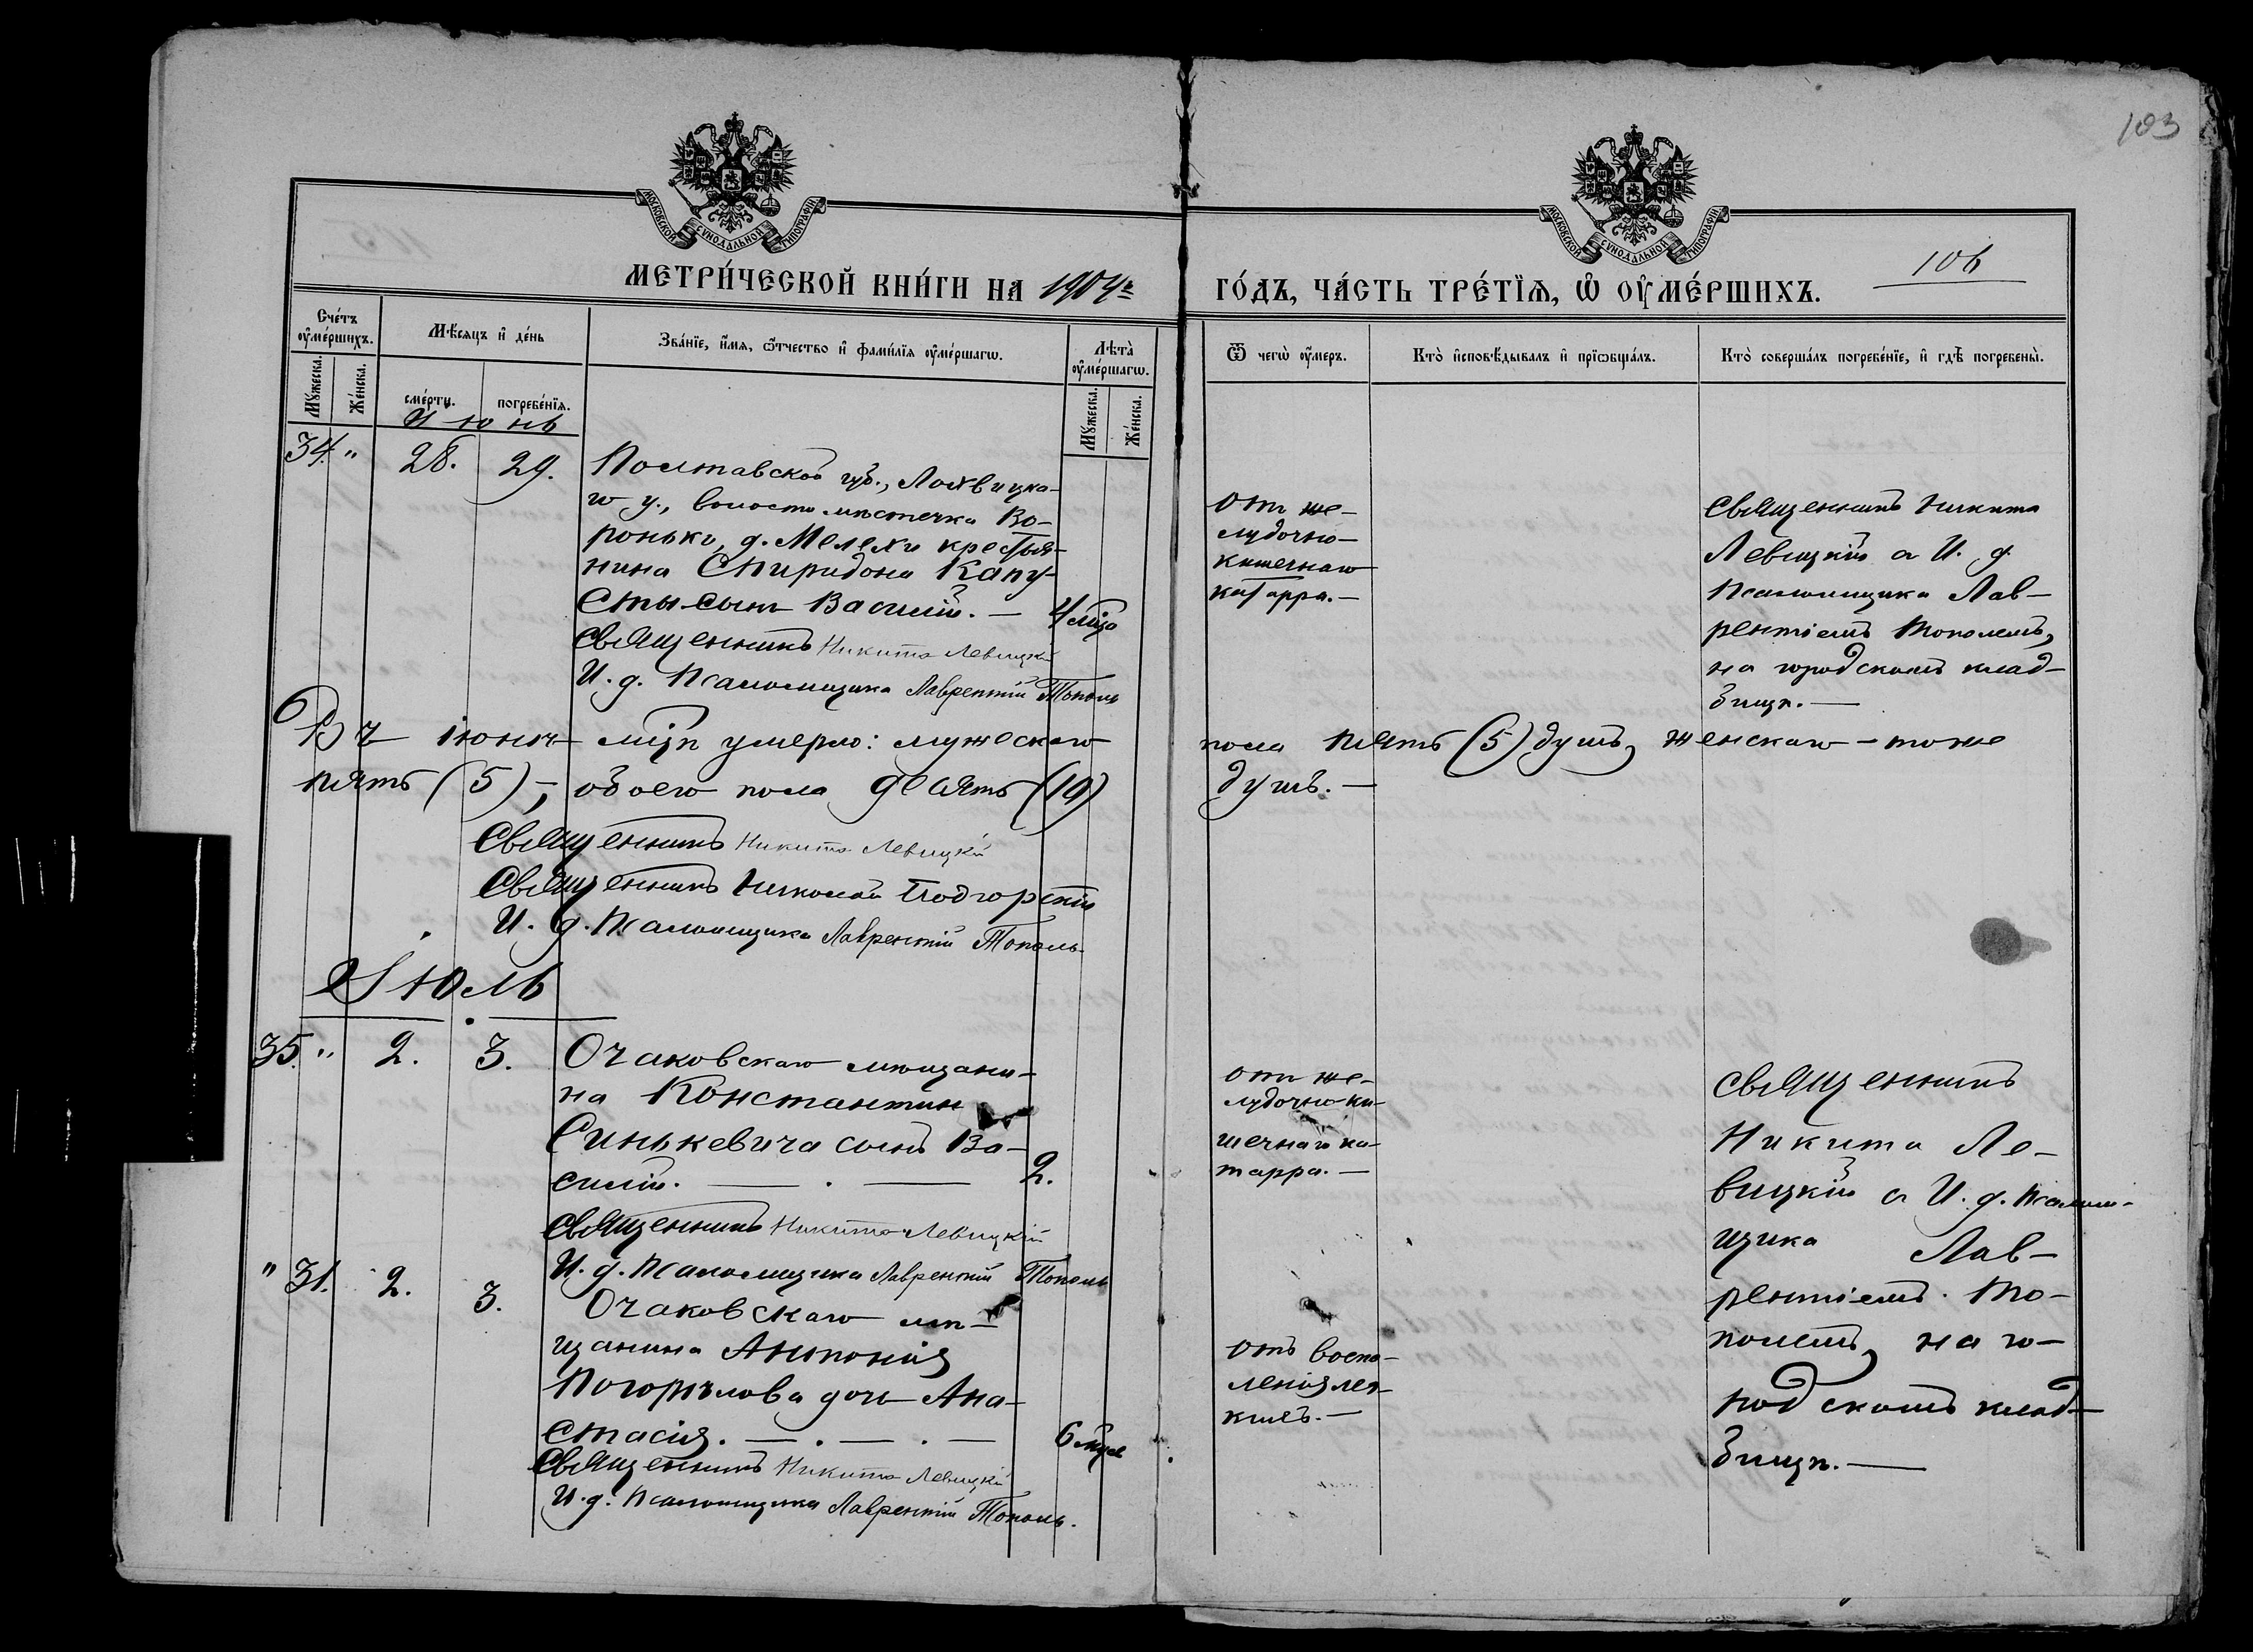 103
МОСКОВСКОЙ СѴНОДАЛЬНОЙ ТИПОГРАФІИ
МОСКОВСКОЙ СѴНОДАЛЬНОЙ ТИПОГРАФІИ
МЕТРИ́ЧЕСКОЙ КНИ́ГИ НА 1904й
ГО́ДЪ, ЧА́СТЬ ТРЕ́ТЇѦ, Ѡ҆ ОУ҆МЕ́РШИХЪ.
106
Сче́тъ оу҆ме́ршихъ.
Мꙋ́жеска.
Же́нска.
Мѣ́сѧцъ и҆ де́нь
сме́рти.
погребе́нїѧ.
Зва́нїе, и҆́мѧ, ѻ҆́тчество и҆ фами́лїѧ оу҆ме́ршагѡ.
Лѣта̀ оу҆ме́ршагѡ.
Мꙋ́жеска.
Же́нска.
Ѿ чегѡ̀ оу҆́меръ.
Кто̀ и҆сповѣ́дывалъ и҆ прїѡбща́лъ.
Кто̀ соверша́лъ погребе́нїе, и҆ гдѣ̀ погребены̀.
Июнь
34. " 28. 29.
Полтавской губ., Лохвицка-
го у., волости мѣстечка Во-
роньки, д. Мелехи крестья-
нина Спиридона Капу-
сты сынъ Василій. — 4 мца
Священникъ Никита Левицкій
И. д. Псаломщика Лаврентій Тополь
Отъ же-
лудочно-
кишечнаго
катарра. —
Священникъ Никита
Левицкій съ И. д.
Псаломщика Лав-
рентіемъ Тополемъ,
на городскомъ клад-
бищѣ. —
Въ іюнѣ мцѣ умерло: мужескаго пола пять (5) душъ, женскаго — тоже
пять (5), — обоего пола десять (10) душъ. —
Священникъ Никита Левицкій
Священникъ Николай Подгорскій
И. д. Псаломщика Лаврентій Тополь
Июль
35. " 2. 3.
Очаковскаго мѣщани-
на Константин
Синькевича сынъ Ва-
силій. — . — 2.
Священникъ Никита Левицкій
И. д. Псаломщика Лаврентій Тополь
отъ же-
лудочно-ки-
шечнаго ка-
тарра. —
Священникъ
Никита Ле-
вицкій съ И. д. Псалом-
щика Лав-
рентіемъ То-
полемъ, на го-
родскомъ клад-
бищѣ. —
" 31. 2. 3.
Очаковскаго мѣ-
щанина Антонія
Погорѣлова дочь Ана-
стасія. — . — . — 6 мцев
Священникъ Никита Левицкій
И. д. Псаломщика Лаврентій Тополь.
отъ воспа-
ленія лег-
кихъ. —